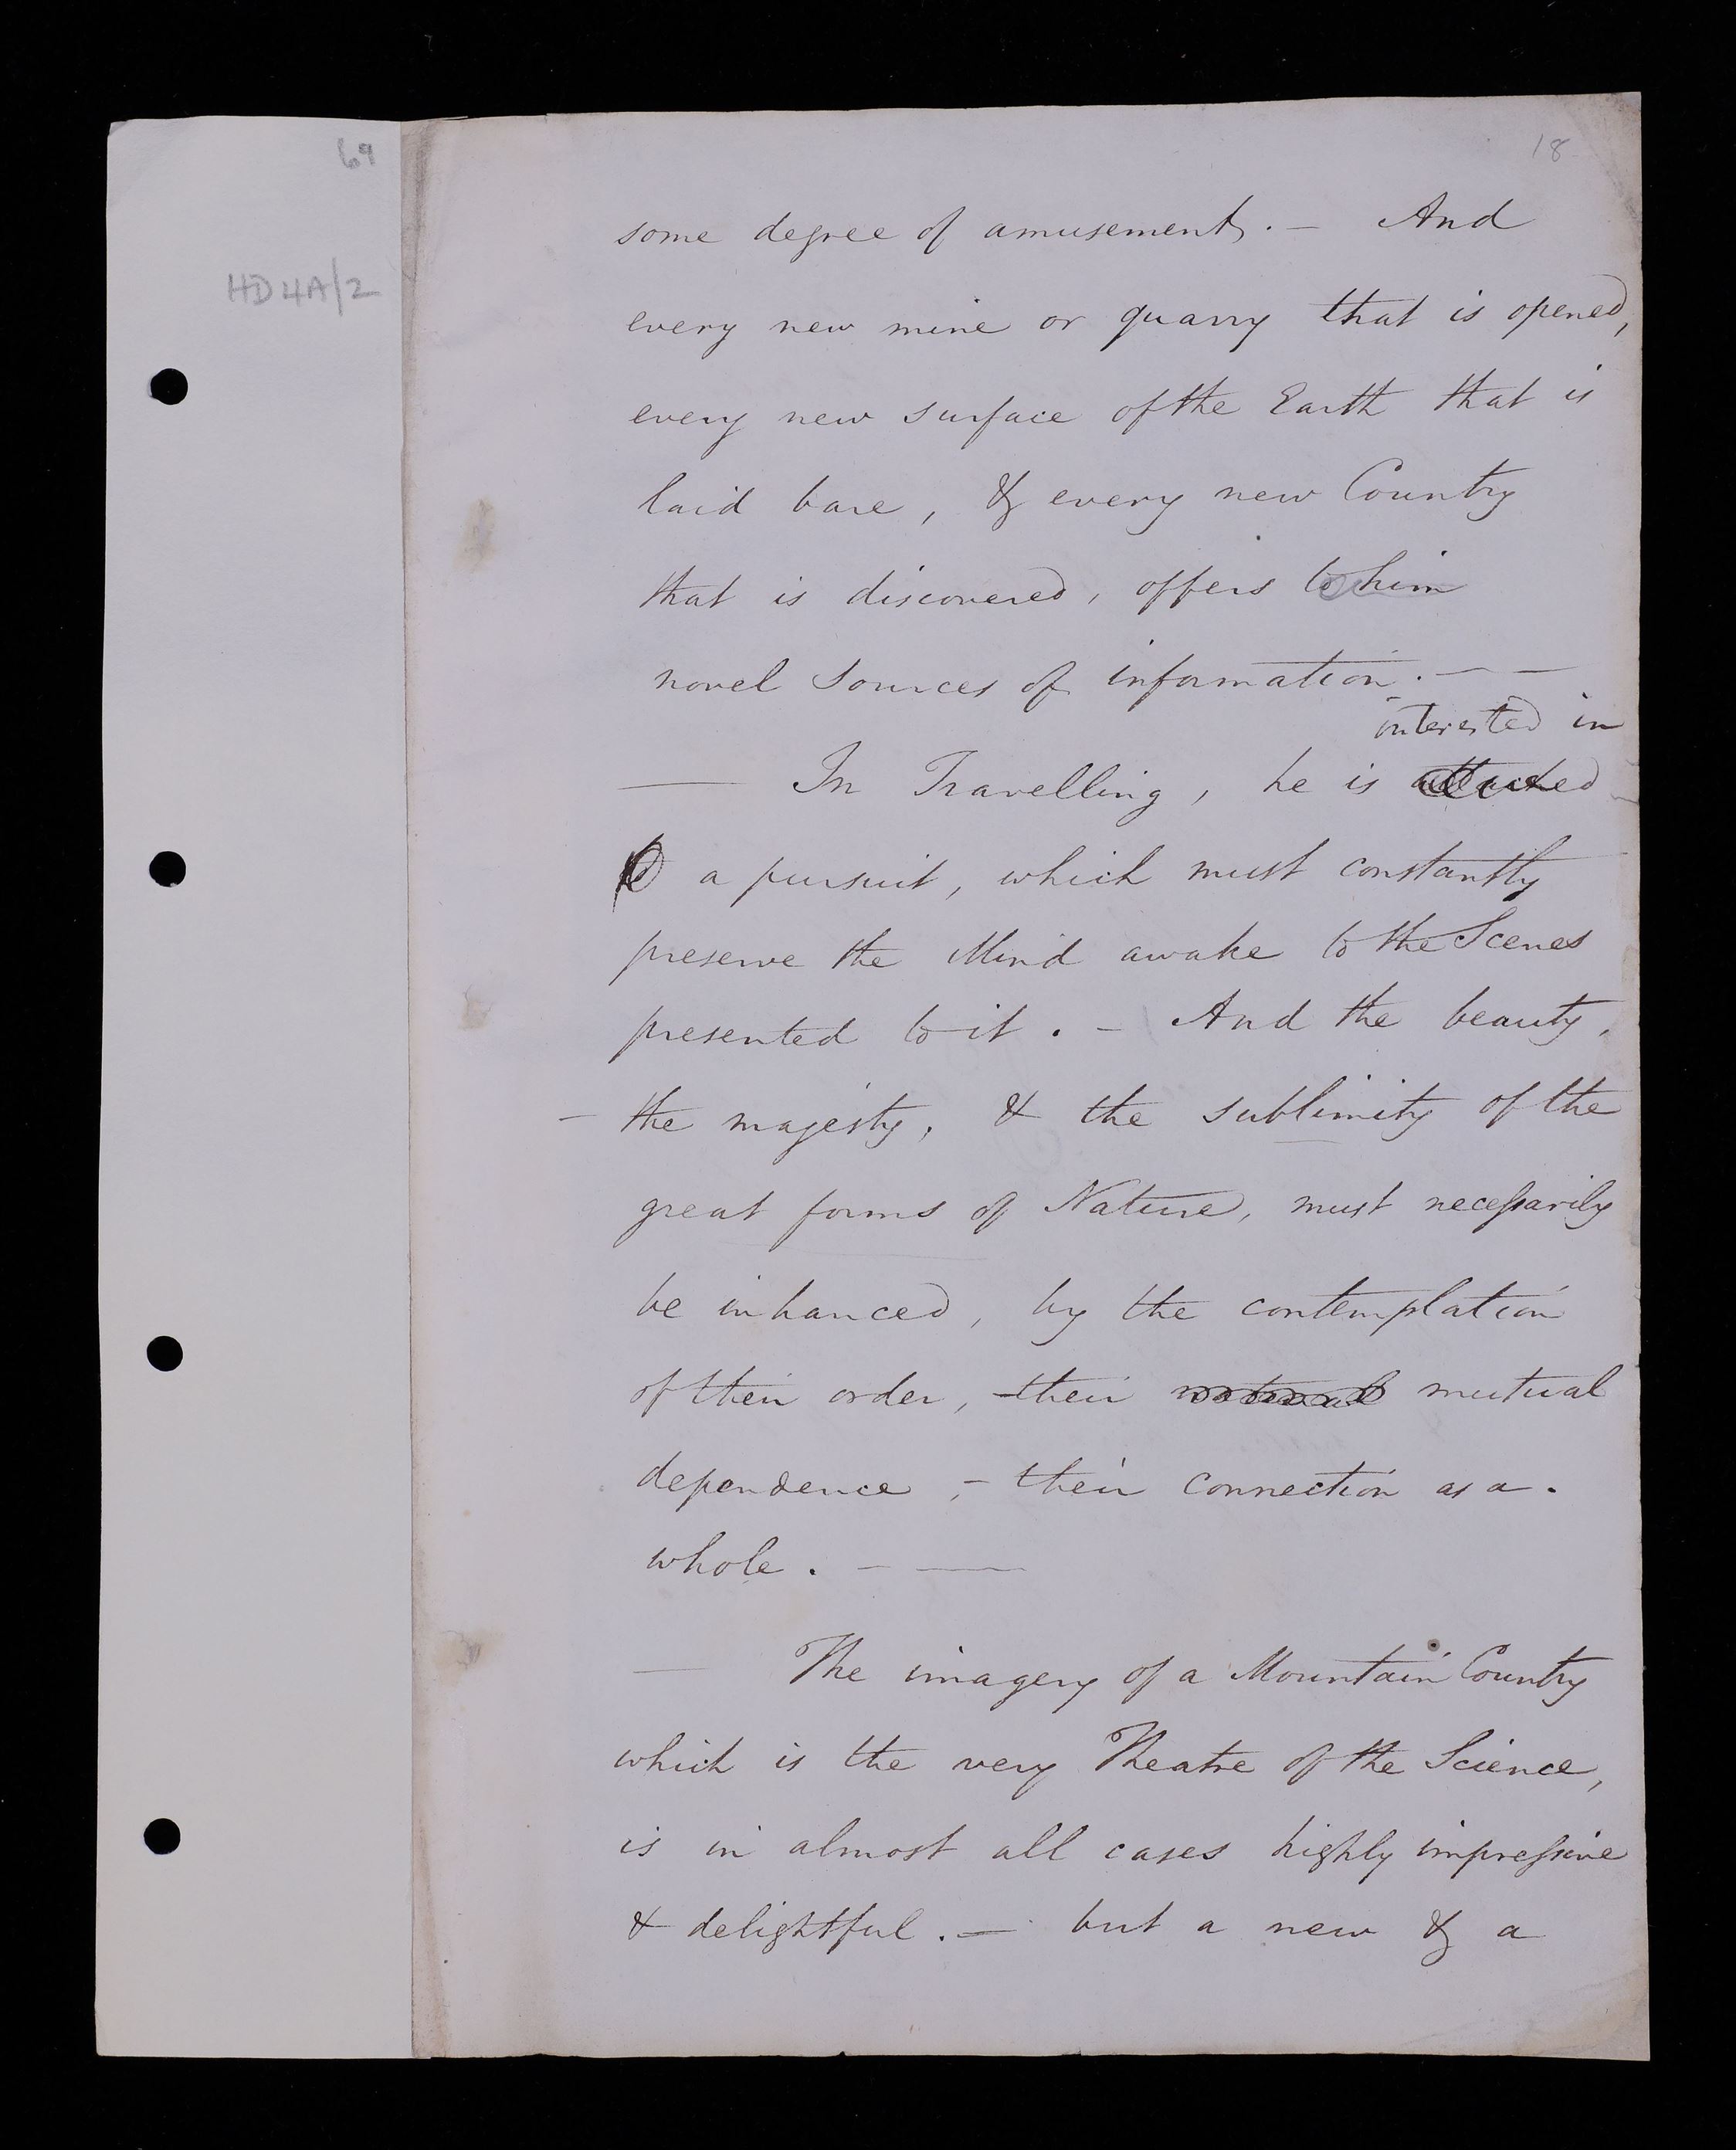 69
18
HD4A/2
some degree of amusement. — And
every new mine or quarry that is opened,
every new surface of the Earth that is
laid bare, & every new Country
that is discovered, offers to him
novel sources of information. — —
interested in
— In Travelling, he is attached
to a pursuit, which must constantly
preserve the Mind awake to the Scenes
presented to it. — And the beauty,
— the majesty, & the sublimity of the
great forms of Nature, must necessarily
be inhanced, by the contemplation
of their order, their mutual
dependence, — their connection as a
whole. — —
— The imagery of a Mountain Country
which is the very Theatre of the Science,
is in almost all cases highly impressive
& delightful. — but a new & a